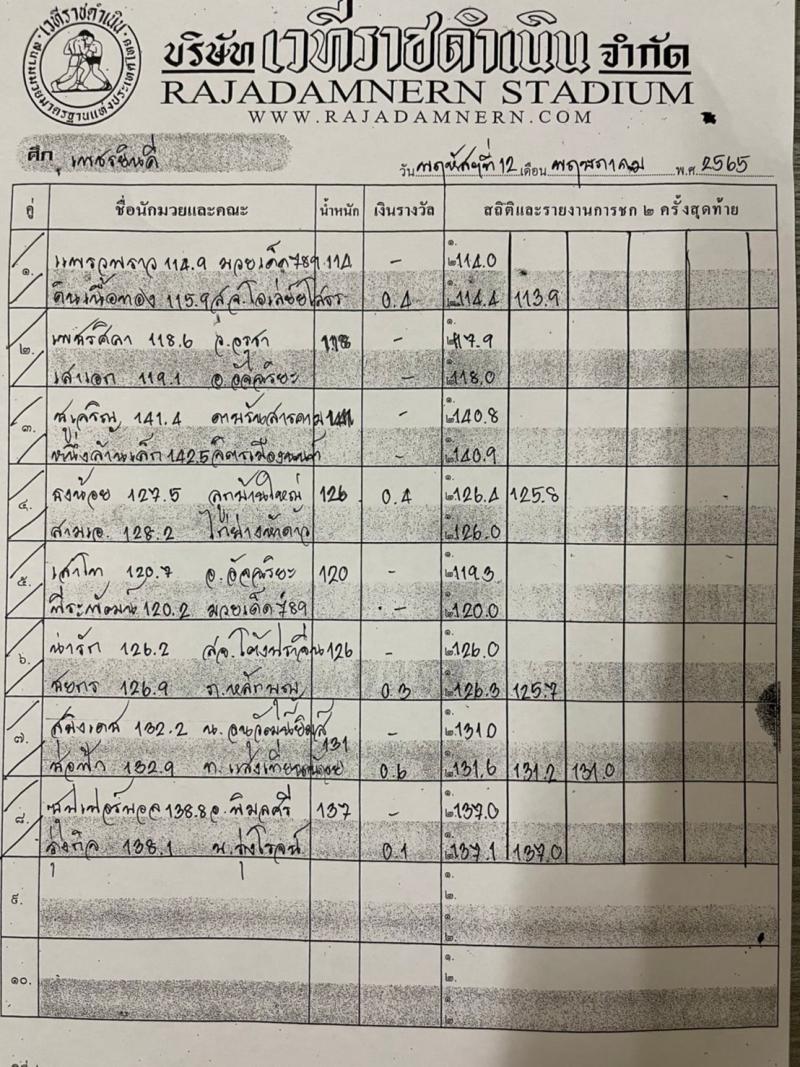 เวทีราชดำเนิน
สนามมวยมาตรฐานแห่งประเทศไทย
บริษัท เวทีราชดำเนิน จำกัด
RAJADAMNERN STADIUM
WWW.RAJADAMNERN.COM
ศึก เพชรยินดี วัน พฤหัสฯที่ 12 เดือน พฤษภาคม พ.ศ. 2565
คู่ ชื่อนักมวยและคณะ น้ำหนัก เงินรางวัล สถิติและรายงานการชก ๒ ครั้งสุดท้าย
๑. แพรวพราว 114.9 มวยเด็ด789 114 - ๑. ๒. 114.0
ดินเนื้อทอง 115.9 0.4 ๑. ๒. 114.4 113.9
๒. เพชรศิลา 118.6 จ.อรุชา 118 - ๑. ๒. 117.9
เสาเอก 119.1 อ.อัจฉริยะ - ๑. ๒. 118.0
๓. 141.4 141 - ๑. ๒. 140.8
หนึ่งล้านเล็ก 142.5 จิตรเมืองนนท์ - ๑. ๒. 140.9
๔. ธงน้อย 127.5 ลูกบ้านใหญ่ 126 0.4 ๑. ๒. 126.4 125.8
สามเอ. 128.2 ไก่ย่างห้าดาว ๑. ๒. 126.0
๕. เสาโท 120.7 อ.อัจฉริยะ 120 - ๑. ๒. 119.3
พีระพัฒน์ 120.2 มวยเด็ด789 - ๑. ๒. 120.0
๖. น่ารัก 126.2 126 - ๑. ๒. 126.0
ชยกร 126.9 0.3 ๑. ๒. 126.3 125.7
๗. สมิงเดช 132.2 น.อนุวัฒน์ยิมส์ 131 - ๑. ๒. 131.0
ช่อฟ้า 132.9 0.6 ๑. ๒. 131.6 131.2 131.0
๘. ซุปเปอร์บอล 138.8 อ.พิมลศรี 137 - ๑. ๒. 137.0
รุ่งกิจ 138.1 บ.รุ่งโรจน์ 0.1 ๑. ๒. 137.1 137.0
๙. ๑.
๒.
๑.
๒.
๑๐. ๑.
๒.
๑.
๒.